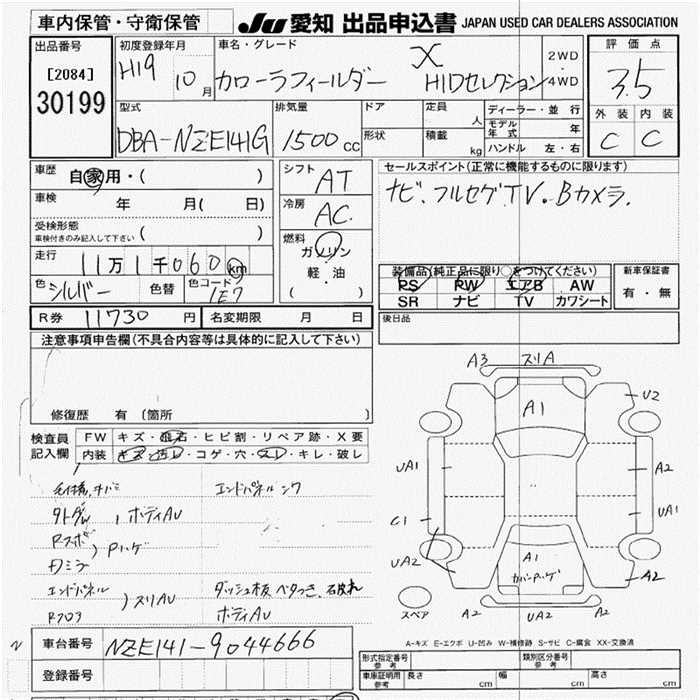 車内保管・守衛保管
JU 愛知 出品申込書 JAPAN USED CAR DEALERS ASSOCIATION
出品番号
[2084]
30199
初度登録年月
H19 10月
車名・グレード
X
カローラフィールダー HIDセレクション
2WD
・
4WD
評価点
3.5
外装 内装
C C
型式
DBA-NZE141G
排気量
1500cc
ドア
形状
定員 人
積載 kg
ディーラー・並行
モデル年式 年
ハンドル 左・右
車歴 自家用・( )
車検 年 月( 日)
受検形態
車検付きのみ記入して下さい ( )
走行 11万1千060km
色 シルバー 色替 色コード 1E7
シフト AT
冷房 AC
燃料
ガソリン
軽・油
( )
セールスポイント(正常に機能するものに限ります)
ナビ.フルセグTV。Bカメラ.
装備品(純正品に限り○をつけてください)
PS PW エアB AW
SR ナビ TV カワシート
新車保証書
有・無
R券 11730円 名変期限 月 日
後日品
注意事項申告欄(不具合内容等は具体的に記入して下さい)
修復歴 有 〔箇所 〕
検査員記入欄
FW キズ・飛石・ヒビ割・リペア跡・X要
内装 キズ・汚レ・コゲ・穴・スレ・キレ・破レ
エンドパネル
ボディAU
Rスポ
Dミラ
) Pハゲ
エンドパネル
Rフロア
) スリAU
ボディAU
A3 スリA
A1
U2
UA1
A2
C1
UA1
UA2
A1
A2
スペア
A2
UA2
A2
A-キズ E-エクボ U-凹み W-補修跡 S-サビ C-腐食 XX-交換済
車台番号 NZE141-9044666
登録番号
形式指定番号
参考
類別区分番号
参考
車庫証明用
参考
長さ cm
幅 cm
高さ cm